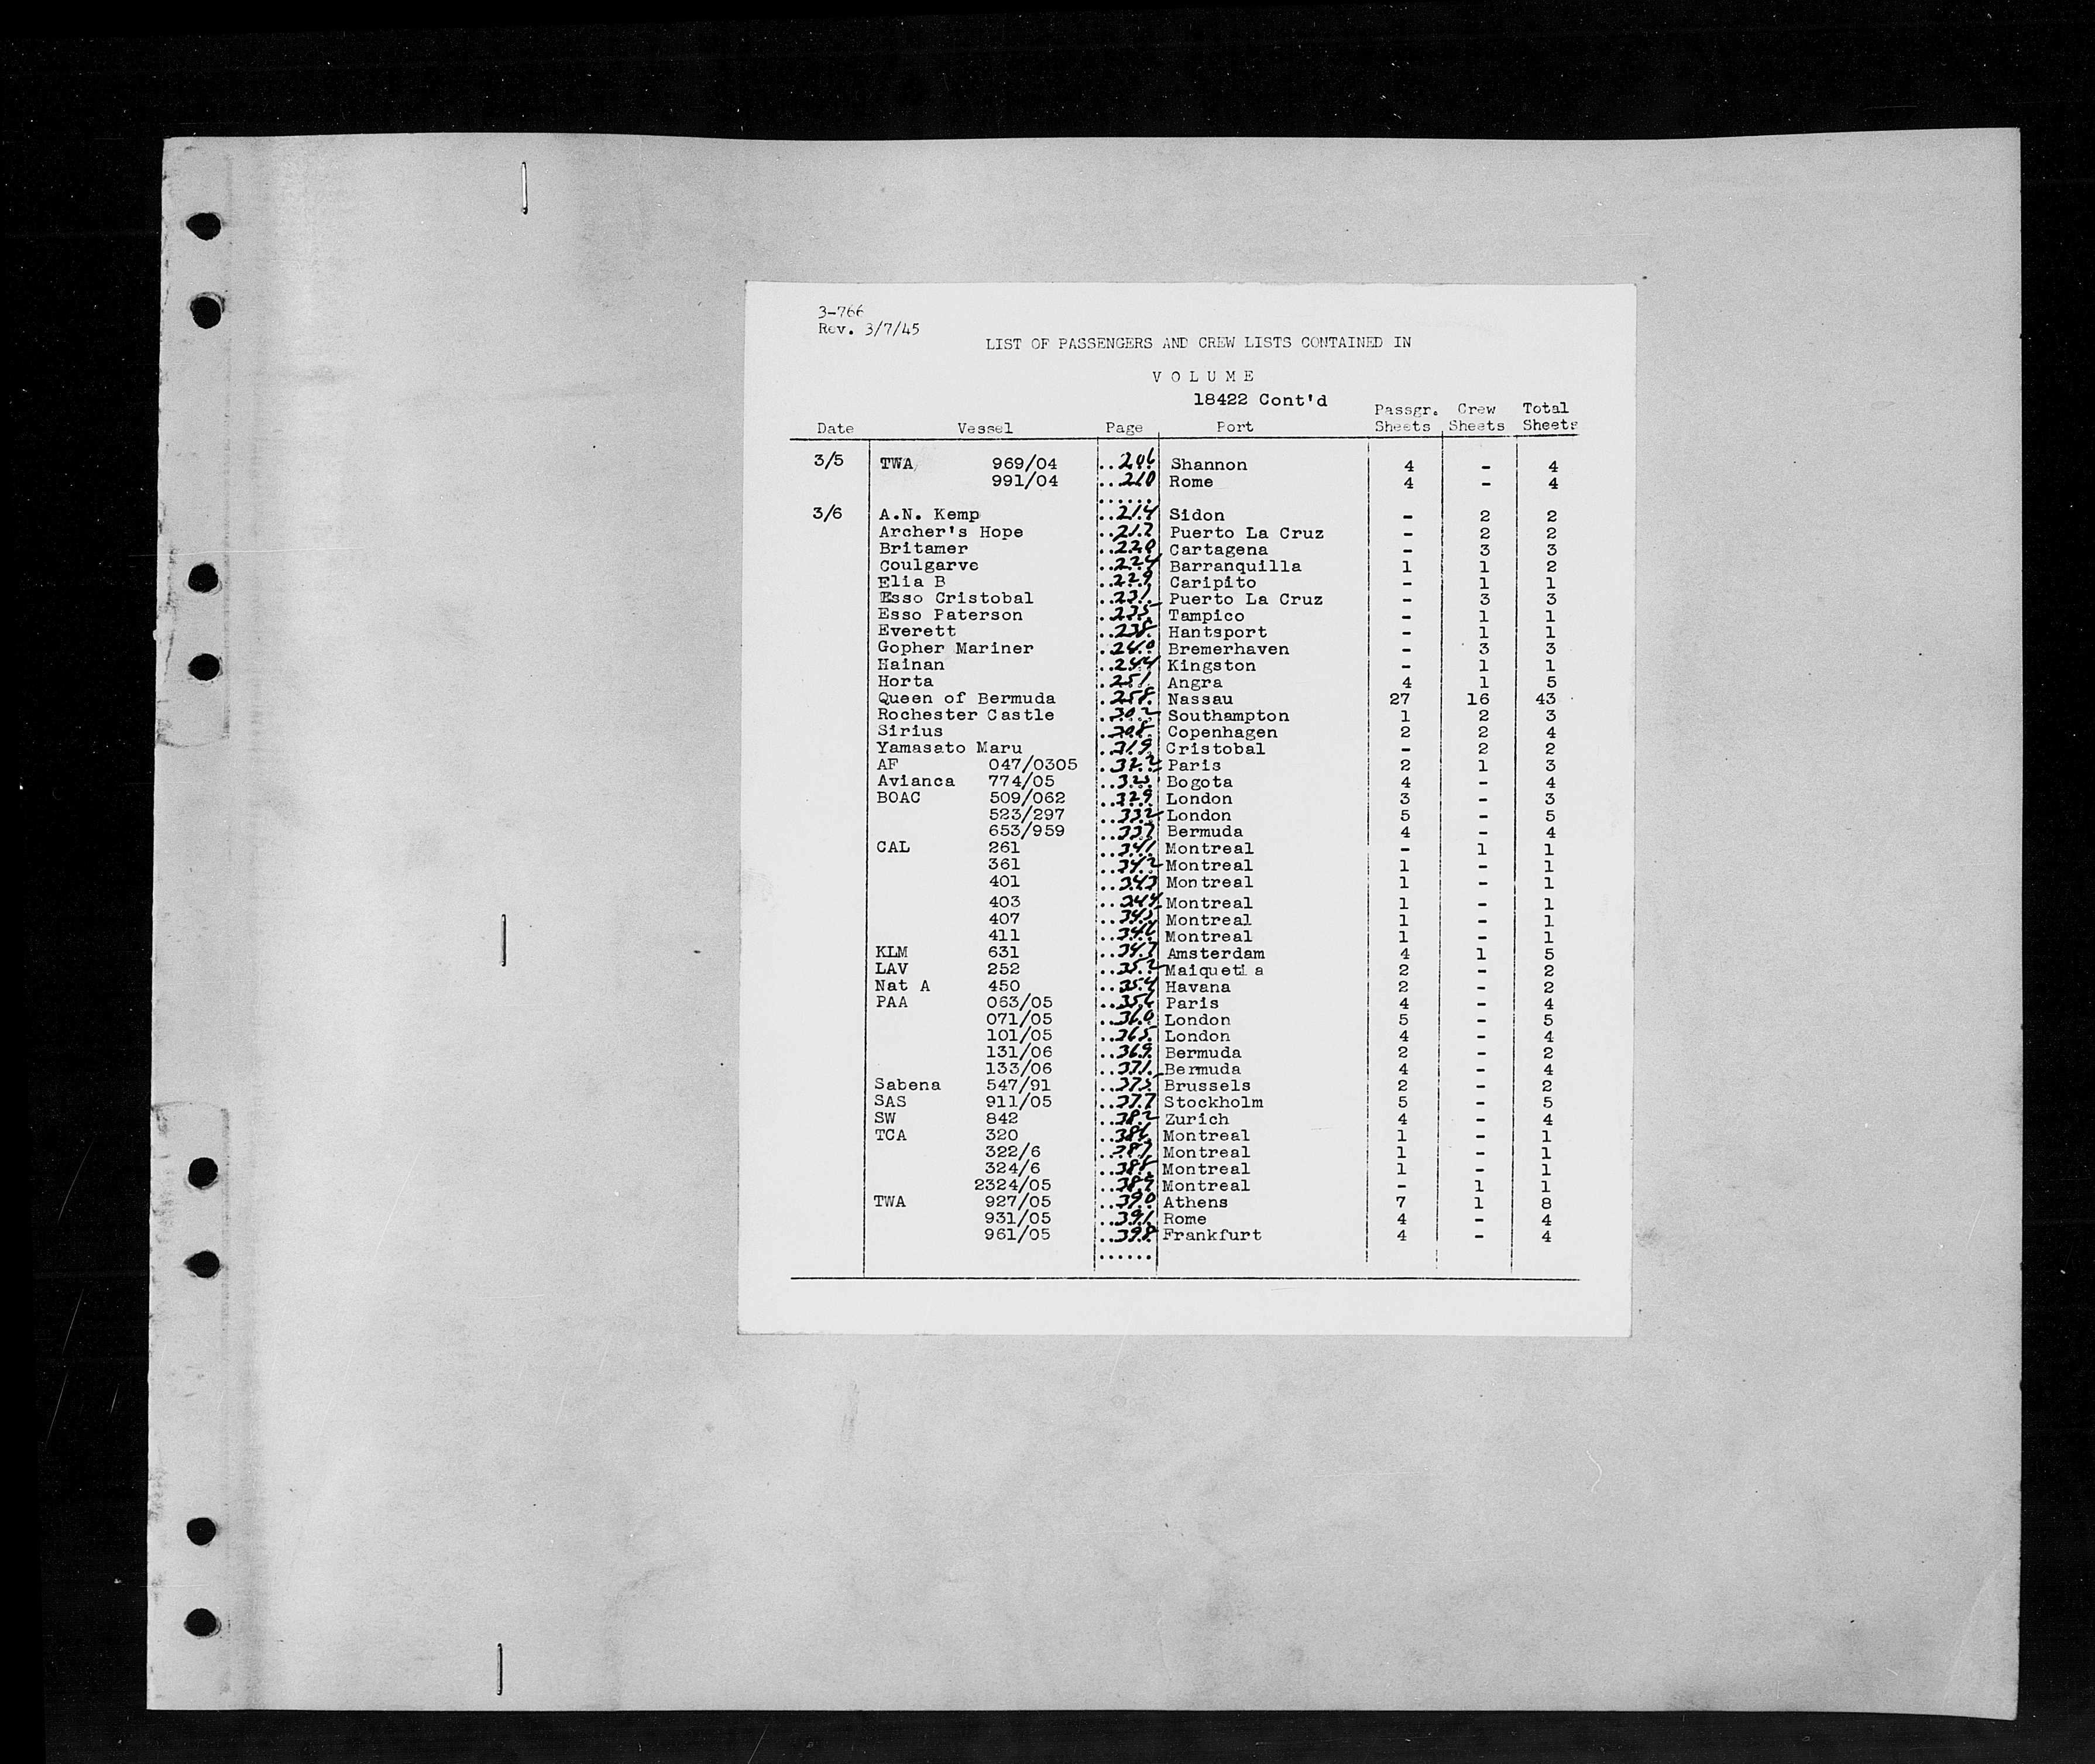 3-766
Rev. 3/7/45
LIST OF PASSENGERS AND CREW LISTS CONTAINED IN
VOLUME
18422 Cont'd
Date Vessel Page Port Passgr. Sheets Crew Sheets Total Sheets
3/5 TWA 969/04 ..206 Shannon 4 - 4
991/04 ..210 Rome 4 - 4
......
3/6 A.N. Kemp ..214 Sidon - 2 2
Archer's Hope ..217 Puerto La Cruz - 2 2
Britamer ..220 Cartagena - 3 3
Coulgarve ..224 Barranquilla 1 1 2
Elia B ..229 Caripito - 1 1
Esso Cristobal ..231 Puerto La Cruz - 3 3
Esso Paterson ..235 Tampico - 1 1
Everett ..238 Hantsport - 1 1
Gopher Mariner .240 Bremerhaven - 3 3
Hainan ..244 Kingston - 1 1
Horta .251 Angra 4 1 5
Queen of Bermuda ..258 Nassau 27 16 43
Rochester Castle .302 Southampton 1 2 3
Sirius .308 Copenhagen 2 2 4
Yamasato Maru .319 Cristobal - 2 2
AF 047/0305 .322 Paris 2 1 3
Avianca 774/05 ..325 Bogota 4 - 4
BOAC 509/062 ..329 London 3 - 3
523/297 ..332 London 5 - 5
653/959 ..337 Bermuda 4 - 4
CAL 261 ..341 Montreal - 1 1
361 ..342 Montreal 1 - 1
401 ..343 Montreal 1 - 1
403 ..344 Montreal 1 - 1
407 ..345 Montreal 1 - 1
411 ..346 Montreal 1 - 1
KLM 631 ..347 Amsterdam 4 1 5
LAV 252 ..352 Maiquetia 2 - 2
Nat A 450 ..354 Havana 2 - 2
PAA 063/05 ..356 Paris 4 - 4
071/05 ..360 London 5 - 5
101/05 ..365 London 4 - 4
131/06 ..369 Bermuda 2 - 2
133/06 ..371 Bermuda 4 - 4
Sabena 547/91 ..375 Brussels 2 - 2
SAS 911/05 ..377 Stockholm 5 - 5
SW 842 ..382 Zurich 4 - 4
TCA 320 ..386 Montreal 1 - 1
322/6 ..387 Montreal 1 - 1
324/6 ..388 Montreal 1 - 1
2324/05 ..389 Montreal - 1 1
TWA 927/05 ..390 Athens 7 1 8
931/05 ..391 Rome 4 - 4
961/05 ..398 Frankfurt 4 - 4
......